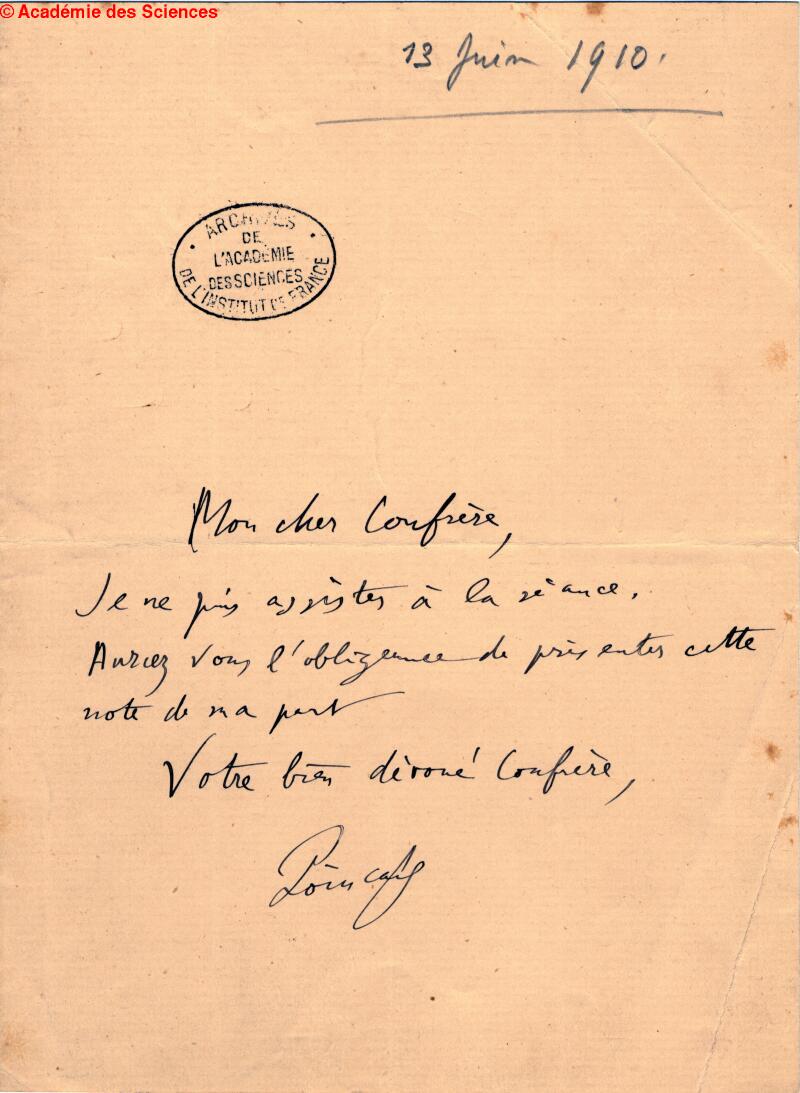 © Académie des Sciences
13 Juin 1910.
ARCHIVES
DE
L'ACADÉMIE
DES SCIENCES
DE L'INSTITUT DE FRANCE
Mon cher Confrère,
Je ne puis assister à la séance.
Auriez vous l'obligeance de présenter cette
note de ma part
Votre bien dévoué Confrère,
Poincaré